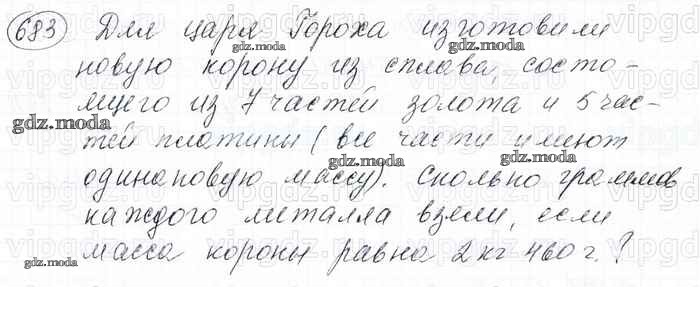 683 Для царя Гороха изготовили
новую корону из сплава, состо-
ящего из 7 частей золота и 5 час-
тей платины (все части имеют
одинаковую массу). Сколько граммов
каждого металла взяли, если
масса короны равна 2 кг 460 г.?
gdz.moda
gdz.moda
gdz.moda
gdz.moda
gdz.moda
gdz.moda
gdz.moda
gdz.moda
gdz.moda